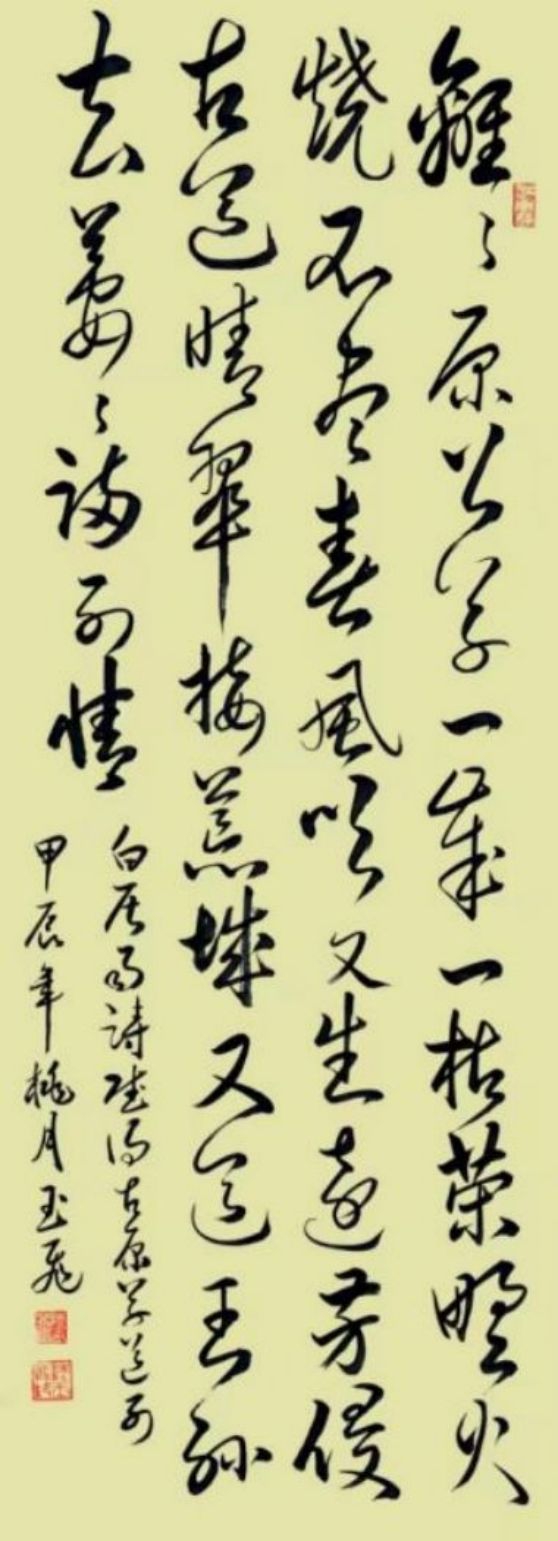 離々原上草一歲一枯榮野火
燒不盡春風吹又生遠芳侵
古道晴翠接荒城又送王孫
去萋々滿別情
白居易詩賦得古原草送別
甲辰年桃月玉飛